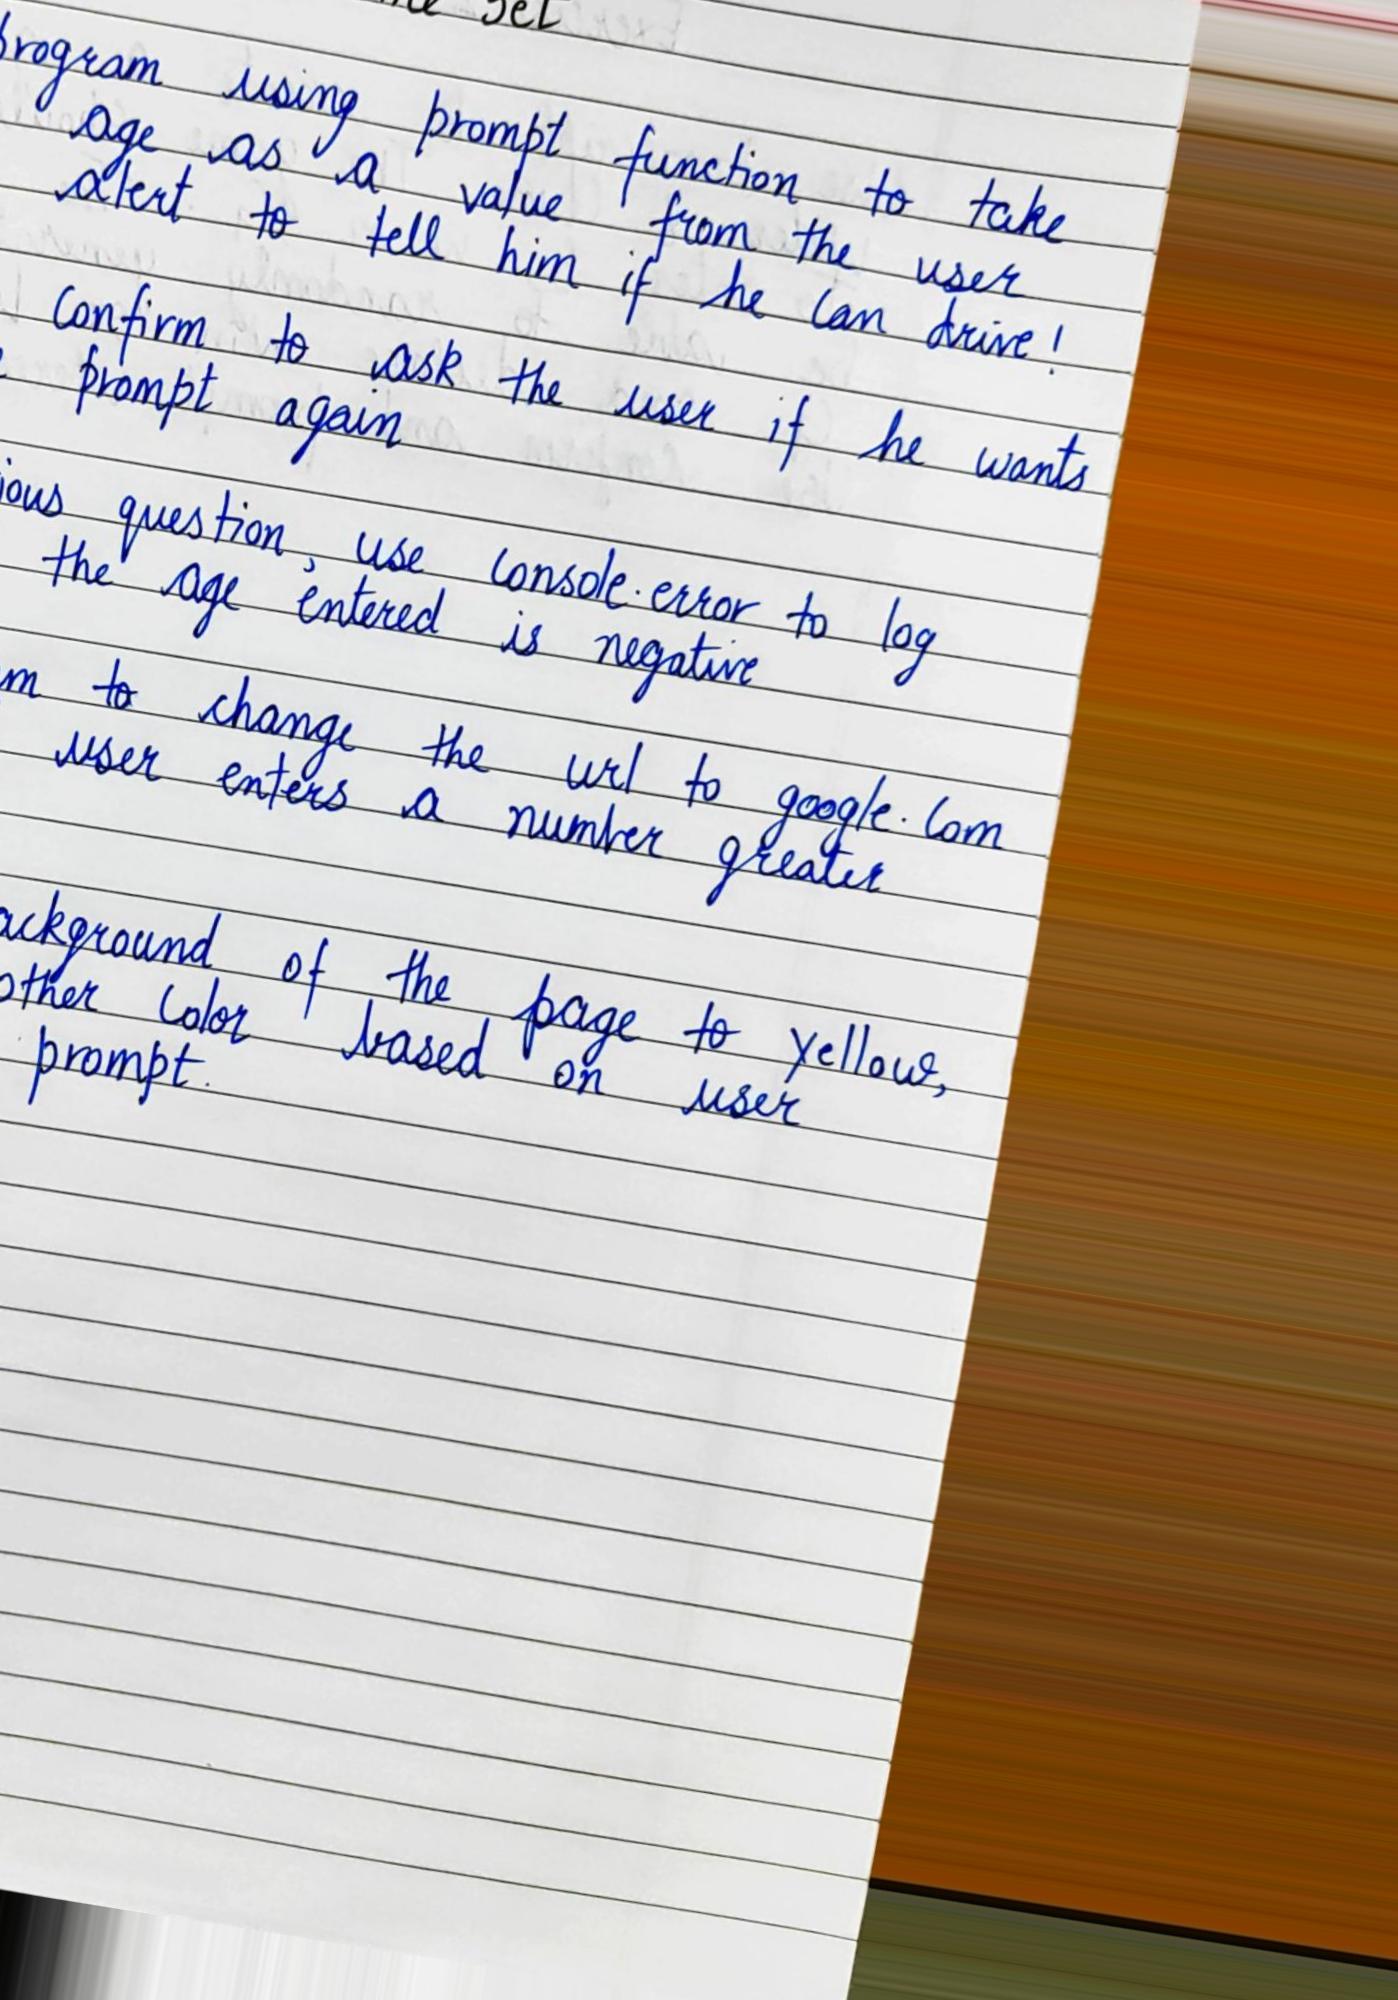 Set
program using prompt function to take
age as a value from the user
alert to tell him if he can drive!
confirm to ask the user if he wants
prompt again
question, use console.error to log
the age entered is negative
to change the url to google.com
user enters a number greater
of the page to yellow,
color based on user
prompt.